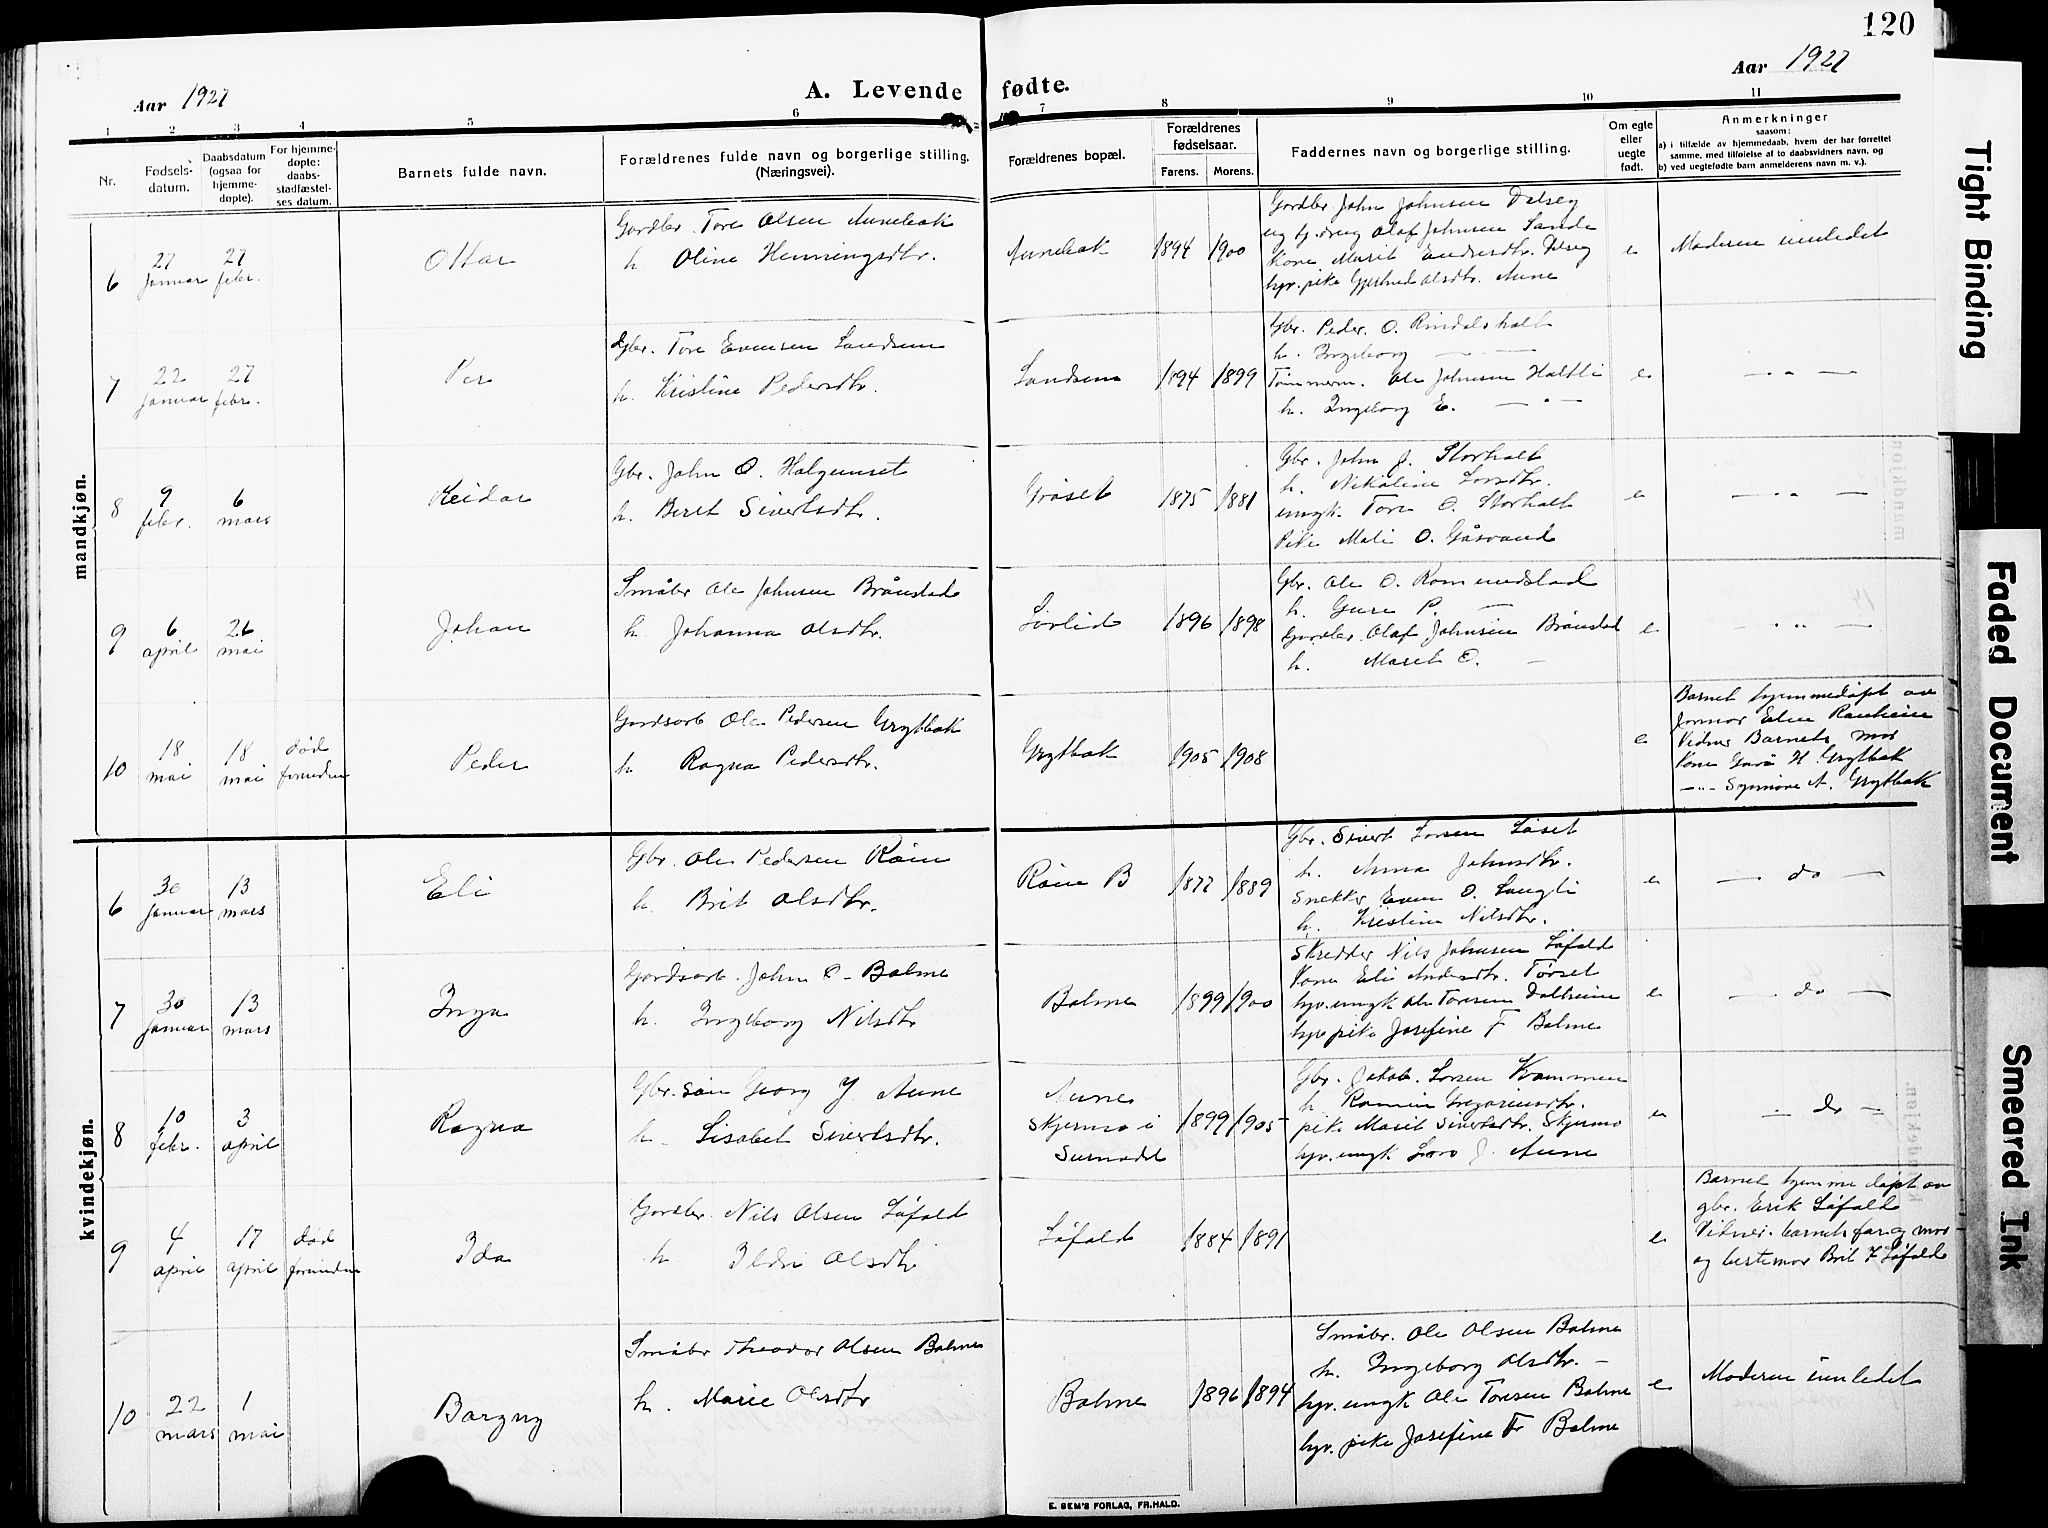 120
Aar 1927
A. Levende fødte.
Aar 1927
1 2 3 4 5 6 7 8 9 10 11
Nr.
Fødsels-
datum.
Daabsdatum
(ogsaa for
hjemme-
døpte).
For hjemme-
døpte:
daabs-
stadfæstel-
ses datum.
Barnets fulde navn.
Forældrenes fulde navn og borgerlige stilling.
(Næringsvei).
Forældrenes bopæl.
Forældrenes
fødselsaar.
Farens. Morens.
Faddernes navn og borgerlige stilling.
Om egte
eller
uegte
født.
Anmerkninger
saasom:
a) i tilfælde av hjemmedaab, hvem der har forrettet
samme, med tilføielse af to daabsvidners navn, og
b) ved uegtefødte barn anmelderens navn m. v.).
mandkjøn.
6
27
januar
27
febr.
Ottar
Gardbr. Tore Olsen Aunebak
h. Oline Henningsdtr.
Aunebak
1894 1900
Gardbr. John Johnsen Dalseg
og gj.dreng Olaf Johnsen Sande
Kone Marit Endresdtr. Dalseg
hjv. pike Gjertrud Olsdtr. Aune
e
Moderen innledet
7
22
januar
27
febr.
Per
Gbr. Tore Evensen Landsem
h. Kristine Pedersdtr.
Landsem
1894 1899
Gbr. Peder O. Rindalsholt
h. Ingeborg — —
Tømmerm. Ole Johnsen Haltli
h. Ingeborg E. — " —
e
— " —
8
9
febr.
6
mars
Reidar
Gbr. John O. Halgunset
h. Beret Sivertsdtr.
Gråset
1875 1881
Gbr. John J. Storholt
h. Nikoline Larsdtr.
ungk. Tore O. Storholt
Pike Mali O. Gåsvand
e
— " —
9
6
april
26
mai
Johan
Småbr Ole Johnsen Brånstad
h. Johanna Olsdtr.
Lørlid
1896 1898
Gbr. Ole O. Romundstad
h. Guru P. —
Gardbr. Olaf Johnsen Brånstad
h. Marit O. —
e
— " —
10
18
mai
18
mai
død
forinden
Peder
Gardsarb Ole Pedersen Grytbak
h Ragna Pedersdtr.
Grytbak
1905 1908
e
Barnet hjemmedøpt av
formor Elen Ranheim
Vidner Barnets mor
Kone Guró H. Grytbak
—"— Synnøve A. Grytbak
kvindekjøn.
6
30
januar
13
mars
Eli
Gbr. Ole Pedersen Røen
h. Brit Olsdtr.
Røen B
1877 1889
Gbr. Sivert Larsen Løset
h. Anna Johnsdtr.
Snekker Even O. Langli
h. Kristine Nilsdtr.
e
— do —
7
30
januar
13
mars
Inga
Gardsarb. John O. Bolme
h. Ingeborg Nilsdtr
Bolme
1899 1900
Skredder Nils Johnsen Løfald
Kone Eli Andersdtr. Tørset
hjv. ungk Ole Toresen Dalheim
hjv pike Josefine F Bolme
e
— do —
8
10
febr.
3
april
Ragna
Gbr. søn Georg J. Aune
h. Lisabet Sivertsdtr.
Aune
Skjermo i
Surnadal
1899 1905
Gbr. Jakob Larsen Kvammen
pike Marit Sivertsdtr. Skjermo
hjv. ungk. Lars J. Aune
e
— do —
9
4
april
17
april
død
forinden
Ida
Gardbr. Nils Olsen Løfald
h. Ildri Olsdtr
Løfald
1884 1891
e
Barnet hjemme døpt av
gbr. Erik Løfald
Vidner: barnets far og mor
og bestemor Brit J. Løfald
10
22
mars
1
mai
Bargny
Småbr Theodor Olsen Bolme
h. Marie Olsdtr
Bolme
1896 1894
Småbr. Ole Olsen Bolme
h. Ingeborg Olsdtr. —
hjv. ungk Ole Toresen Bolme
hjv. pike Josefine F Bolme
e
Moderen innledet
E. SEM'S FORLAG, FR.HALD.
Tight Binding
Faded Document
Smeared Ink